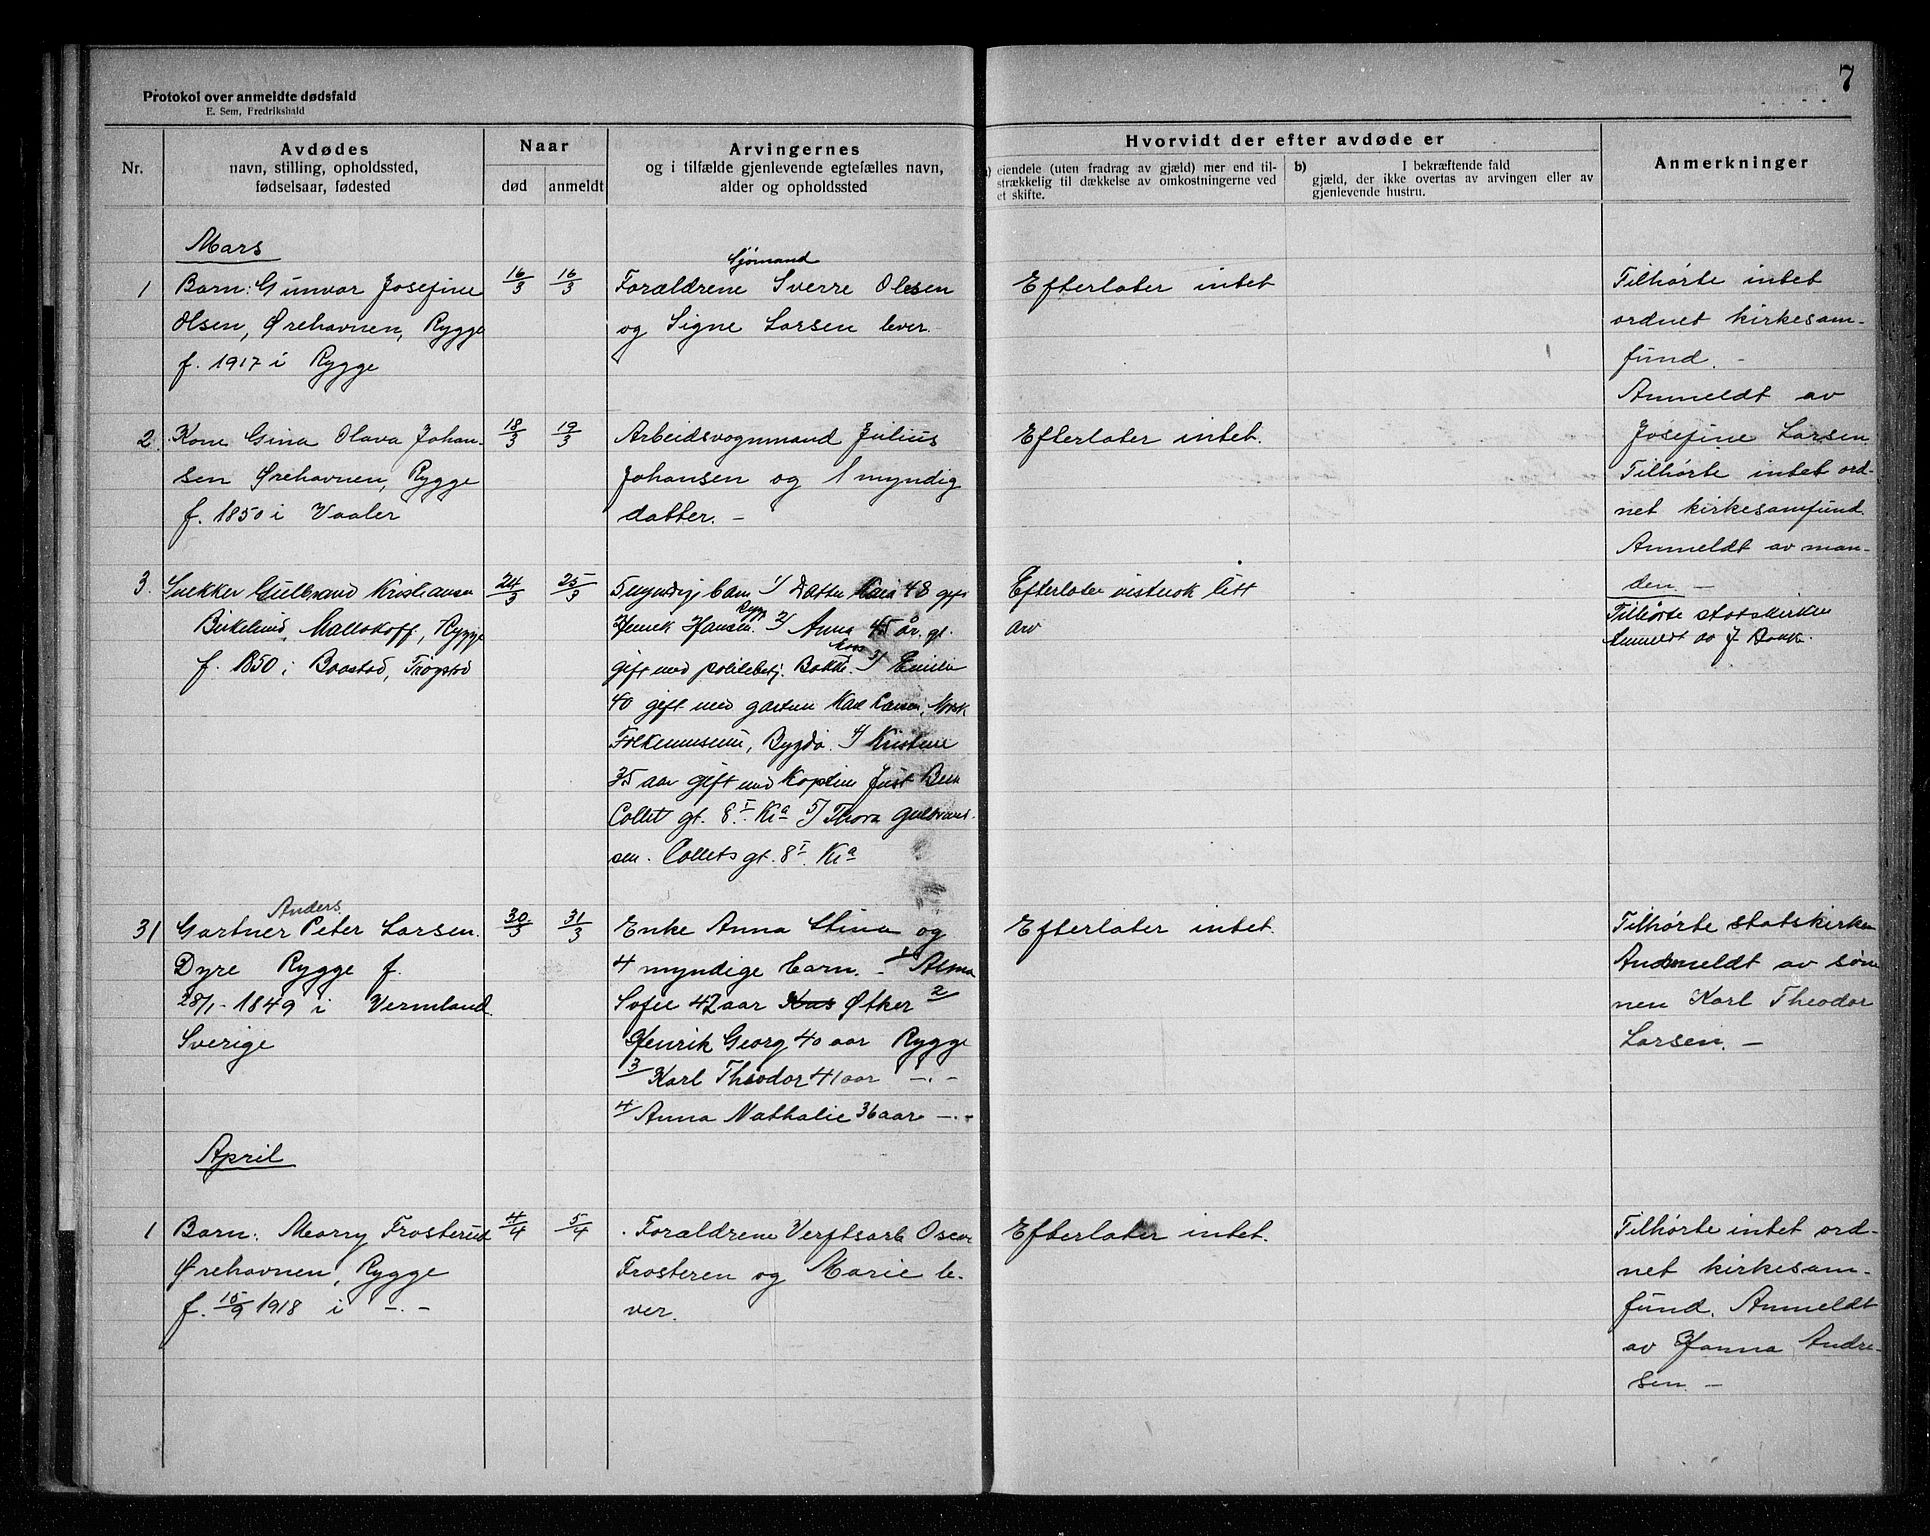 7
Protokol over anmeldte dødsfald
E. Sem, Fredrikshald
Nr.
Avdødes
navn, stilling, opholdssted,
fødselsaar, fødested
Naar
død
anmeldt
Arvingernes
og i tilfælde gjenlevende egtefælles navn,
alder og opholdssted
Hvorvidt der efter avdøde er
eiendele (uten fradrag av gjæld) mer end til-
strækkelig til dækkelse av omkostningerne ved
et skifte.
b) I bekræftende fald
gjæld, der ikke overtas av arvingen eller av
gjenlevende hustru.
Anmerkninger
Mars
1
Barn: Gunvor Josefine
Olsen, Ørehavnen, Rygge
f. 1917 i Rygge
16/3
16/3
Sjømand
Forældrene Sverre Olesen
og Signe Larsen lever.-
Efterlater intet
Tilhørte intet
ordnet kirkesam-
fund. -
Anmeldt av
Josefine Larsen
2
Kone Gina Olava Johan-
sen Ørehavnen, Rygge
f. 1850 i Vaaler
18/3
19/3
Arbeidsvognmand Julius
Johansen og 1 myndig
datter. -
Efterlater intet.
Tilhørte intet ord-
net kirkesamfund.
Anmeldt av man-
den -
3.
Snekker Gulbrand Kristiansen
Birkelund, Mallakoff, Rygge
f. 1850 i Baastad, Trøgstad
24/3
25/3
5 myndige barn 1/ Datter 48 gift
Henrik Hansen. Rygge 2/ Anna 45 år. gt.
gift med politibetj. Bakke. Moss 3/ Emilie
40 gift med gartner Karl Larsen, Norsk
Folkemuseum, Bygdø. 4/ Kristine
35 aar gift med Kaptein Just
Collet gt. 8 I. Kia 5/ Thora Gulbrand-
sen. Collets gt. 8 I. Kia
Efterlater vistnok litt
arv
Tilhørte statskirken
Anmeldt av J Bakke.
31
Anders
Gartner Peter Larsen.
Dyre Rygge f.
28/1-1849 i Vermland.
Sverige
30/3
31/3
Enke Anna Stina og
4 myndige barn. - 1/ Alma
Sofie 42 aar Øtker 2/
Henrik Georg 40 aar Rygge
3/ Karl Theodor 41 aar -.-
4/ Anna Nathalie 36 aar -.-
Efterlater intet.
Tilhørte statskirken
Anmeldt av søn-
nen Karl Theodor
Larsen. -
April
1
Barn: Marry Frosterud
Ørehavnen, Rygge
f. 15/9 1918 i -.-
4/4
5/4
Forældrene Verftsarb Oscar
Frosteren og Marie le-
ver.
Efterlater intet.
Tilhørte intet ord-
net kirkesam-
fund. Anmeldt
av Hanna Andre-
sen. -